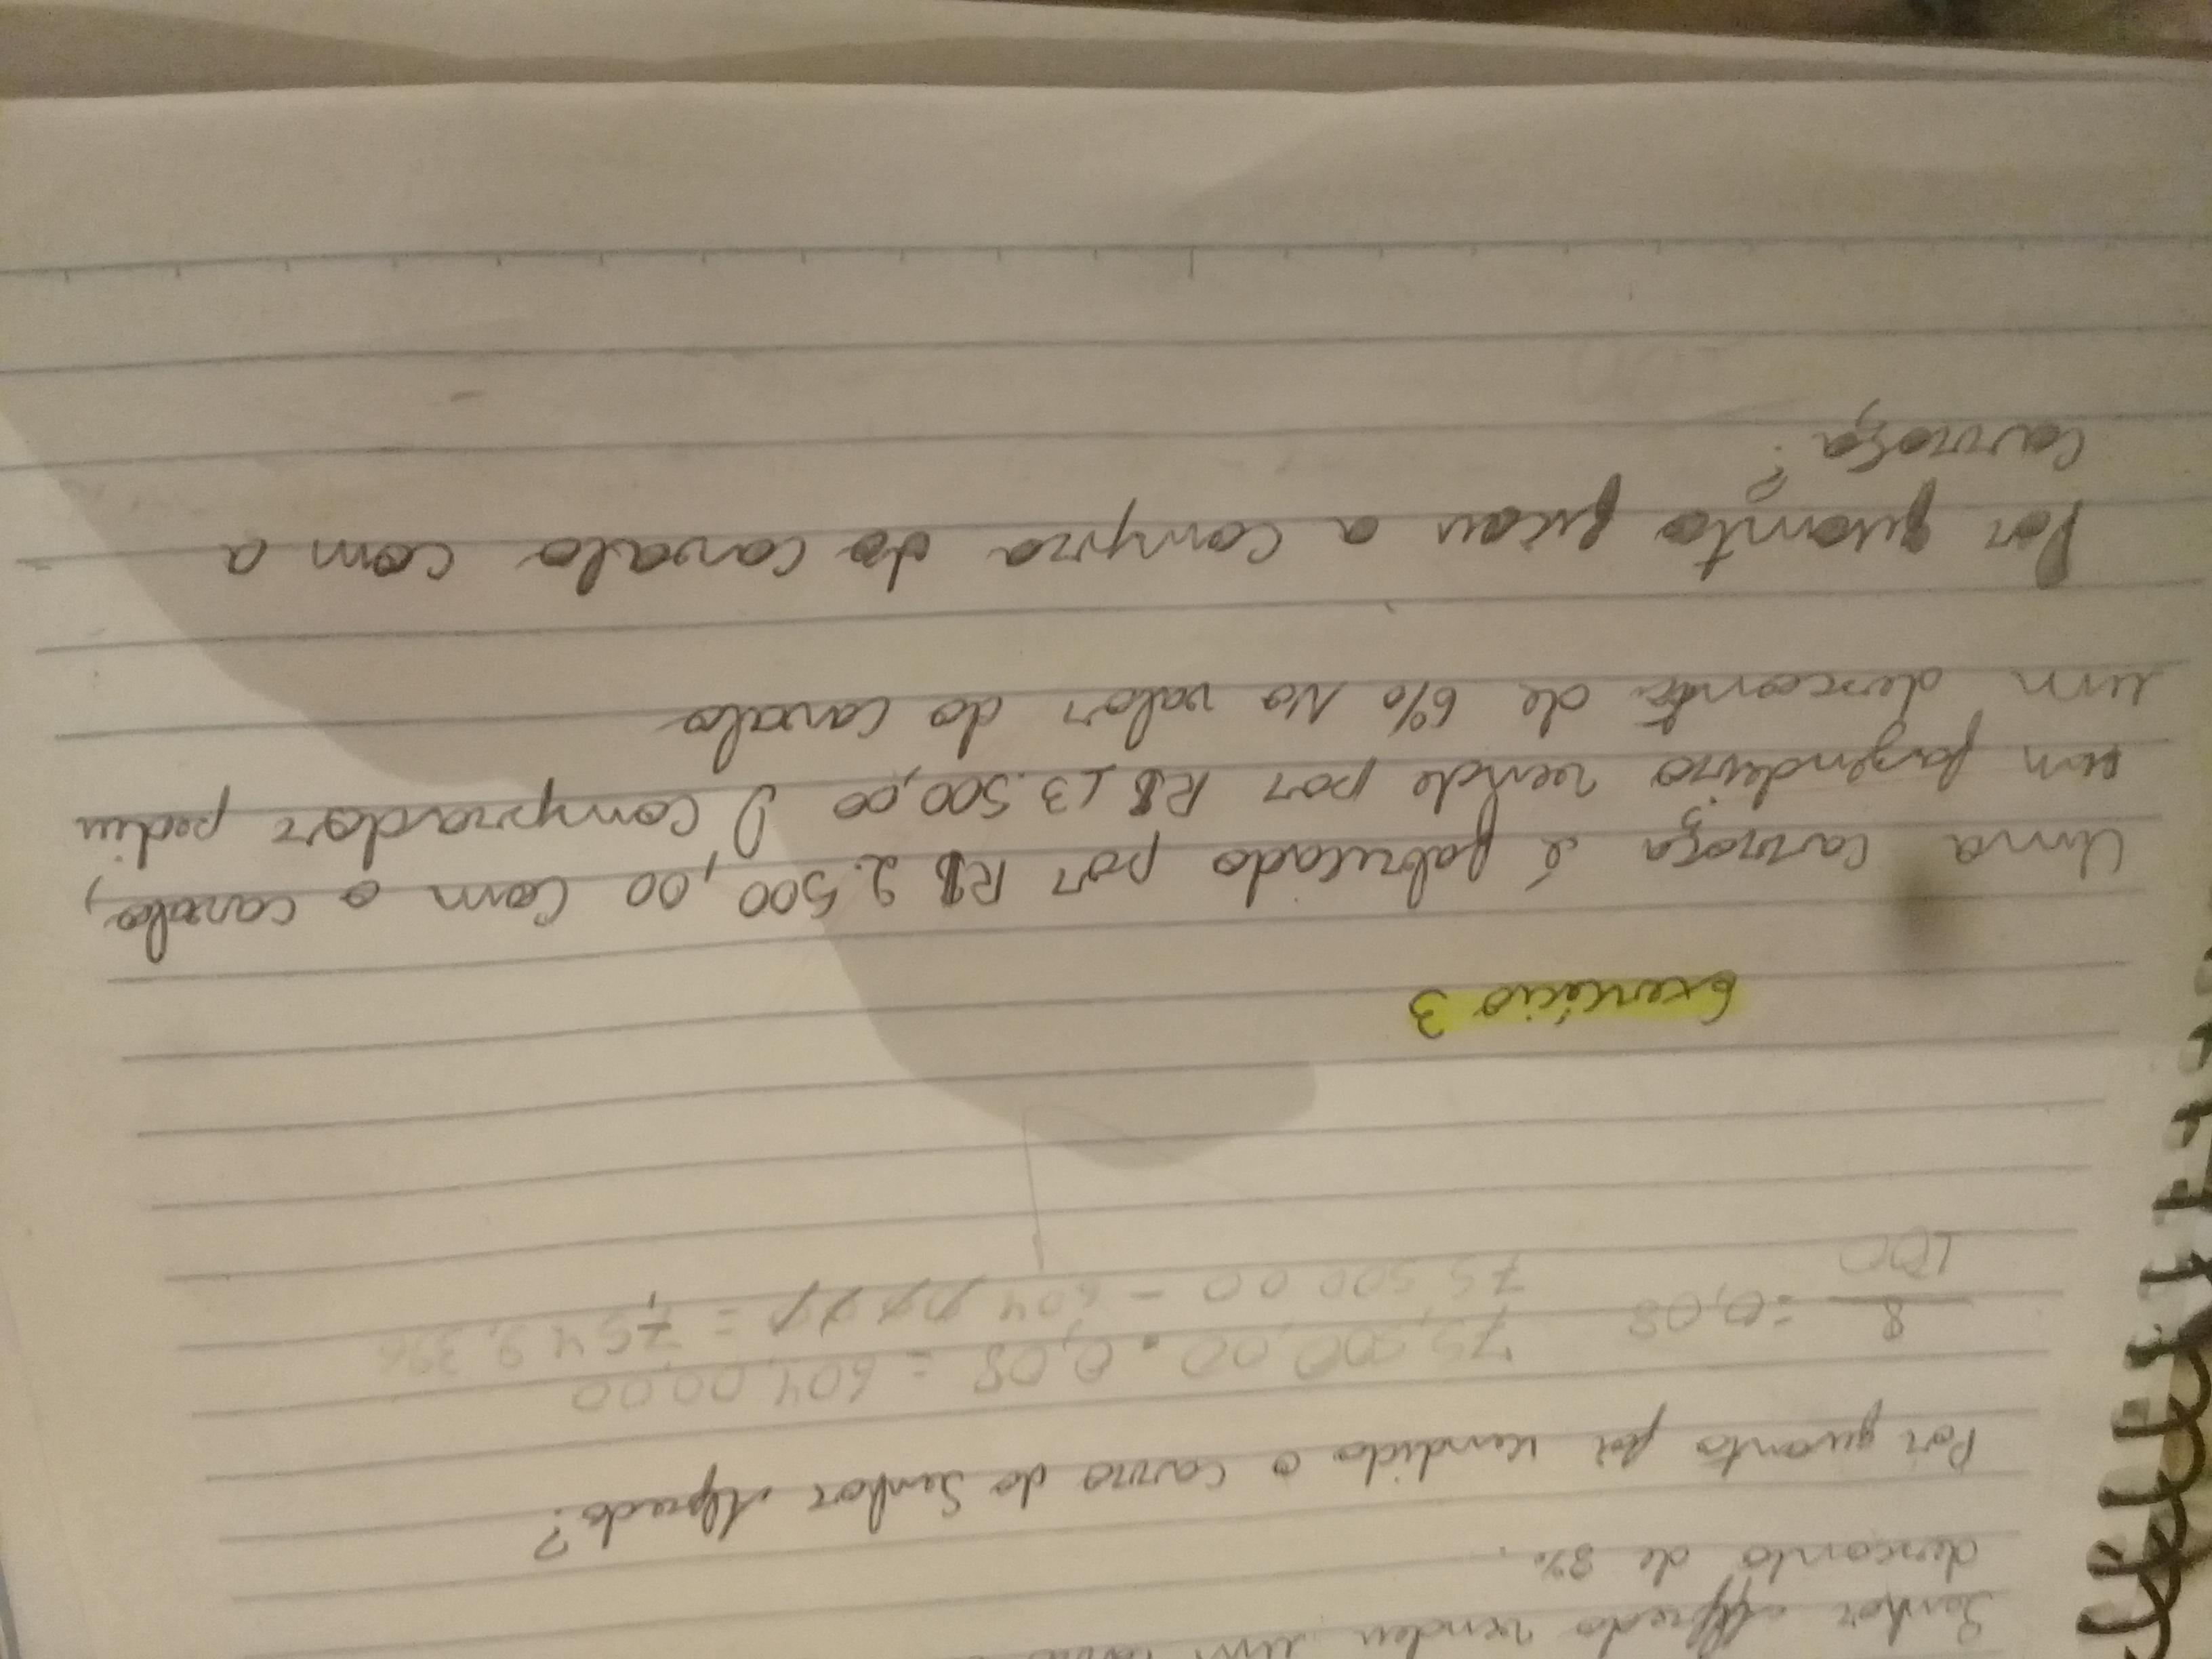 Senhor Alfredo vendeu um
desconto de 8%.
Por quanto foi vendido o carro do Senhor Alfredo?
8/100 = 0,08 75,500,00 . 0,08 = 604,00,00
75,500,00 - 604 = 7,549,396
Exercício 3
Uma carroça é fabricado por R$ 2.500,00 com o cavalo,
um fazendeiro vende por R$ 13.500,00 O comprador pediu
um desconto de 6% no valor do cavalo
Por quanto ficou a compra do cavalo com a
carroça?